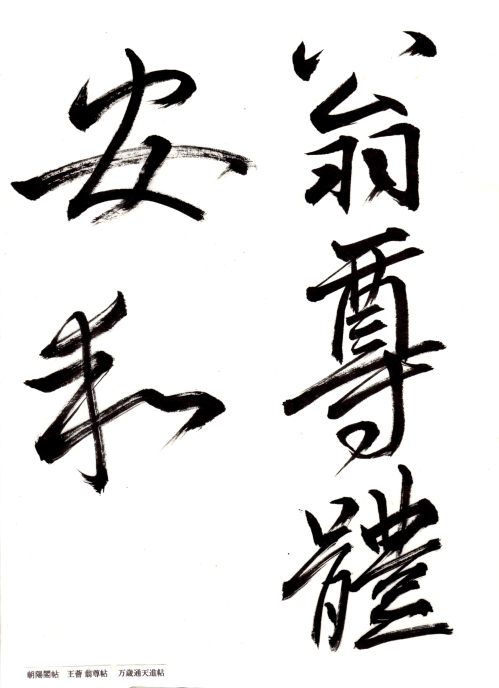 翁尊體
安和
朝陽閣帖 王薈 翁尊帖 万歳通天進帖